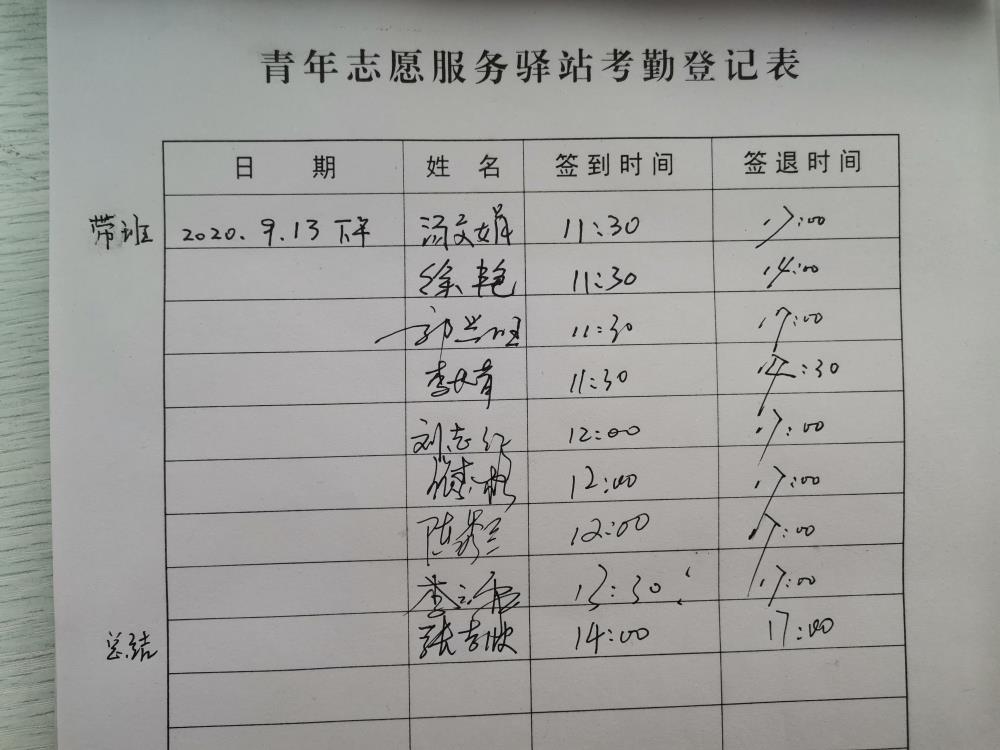 青年志愿服务驿站考勤登记表
日 期 姓 名 签到时间 签退时间
带班 2020.9.13 下午 汤文娟 11:30 17:00
徐艳 11:30 14:00
11:30 17:00
李文青 11:30 :30
刘志红 12:00 17:00
12:00 17:00
陈秀兰 12:00 17:00
李 13:30 17:00
总结 张 14:00 17:00